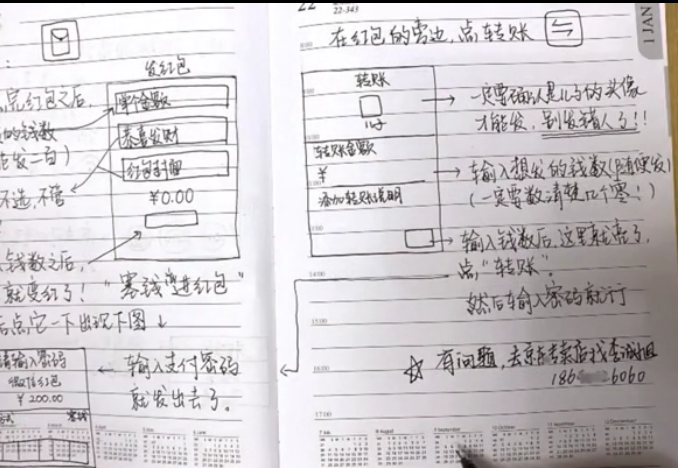 发红包
点完红包之后,
单个金额
的钱数
恭喜发财
能发二百)
红包封面
不选,不管
¥0.00
钱数之后,
就变红了!“塞钱进红包”
后点它一下出现下图↓
请输入密码
微信红包
¥200.00
← 输入支付密码
就发出去了。
22-343
1 JAN
在红包的旁边,点转账
转账
儿子
→ 一定要确认是儿子的头像
才能发,别发错人了!!
转账金额
¥
→ 输入想发的钱数(随便发)
(一定要数清楚几个零!)
添加转账说明
→ 输入钱数后,这里就亮了,
点,“转账”。
然后输入密码就行
14:00
15:00
16:00
☆ 有问题,去京东专卖店找李诚姐
186 6060
17:00